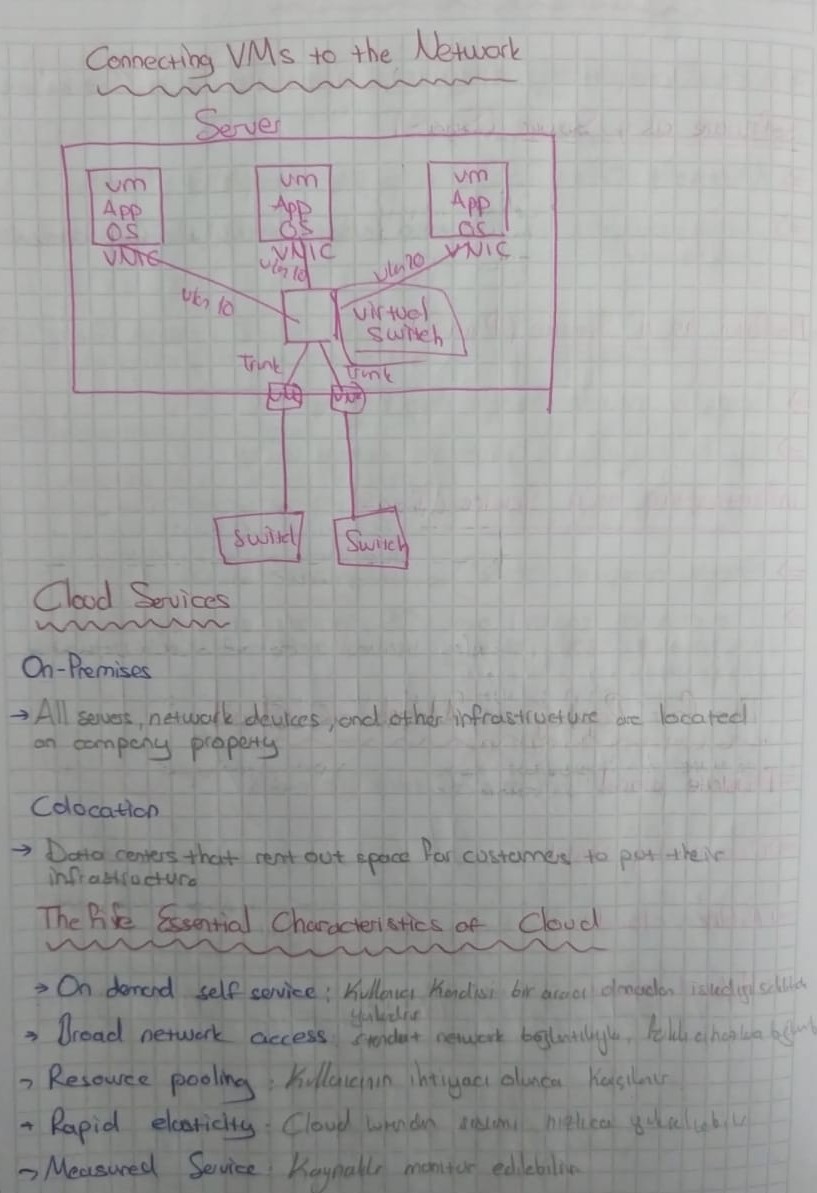 Connecting VMs to the Network
Server
vm
App
OS
VNIC
vm
App
OS
VNIC
vm
App
OS
VNIC
vln 10
vln 10
vln 20
virtual
switch
Trunk
Trunk
Switch
Switch
Cloud Services
On-Premises
→ All servers, network devices, and other infrastructure are located
on company property
Colocation
→ Data centers that rent out space for customers to put their
infrastructure
The Five Essential Characteristics of Cloud
→ On demand self service: Kullanıcı Kendisi bir aracı olmadan
→ Broad network access network
→ Resource pooling: Kullanıcının ihtiyacı olunca
→ Rapid elasticity: Cloud
→ Measured Service: monitor edilebilir